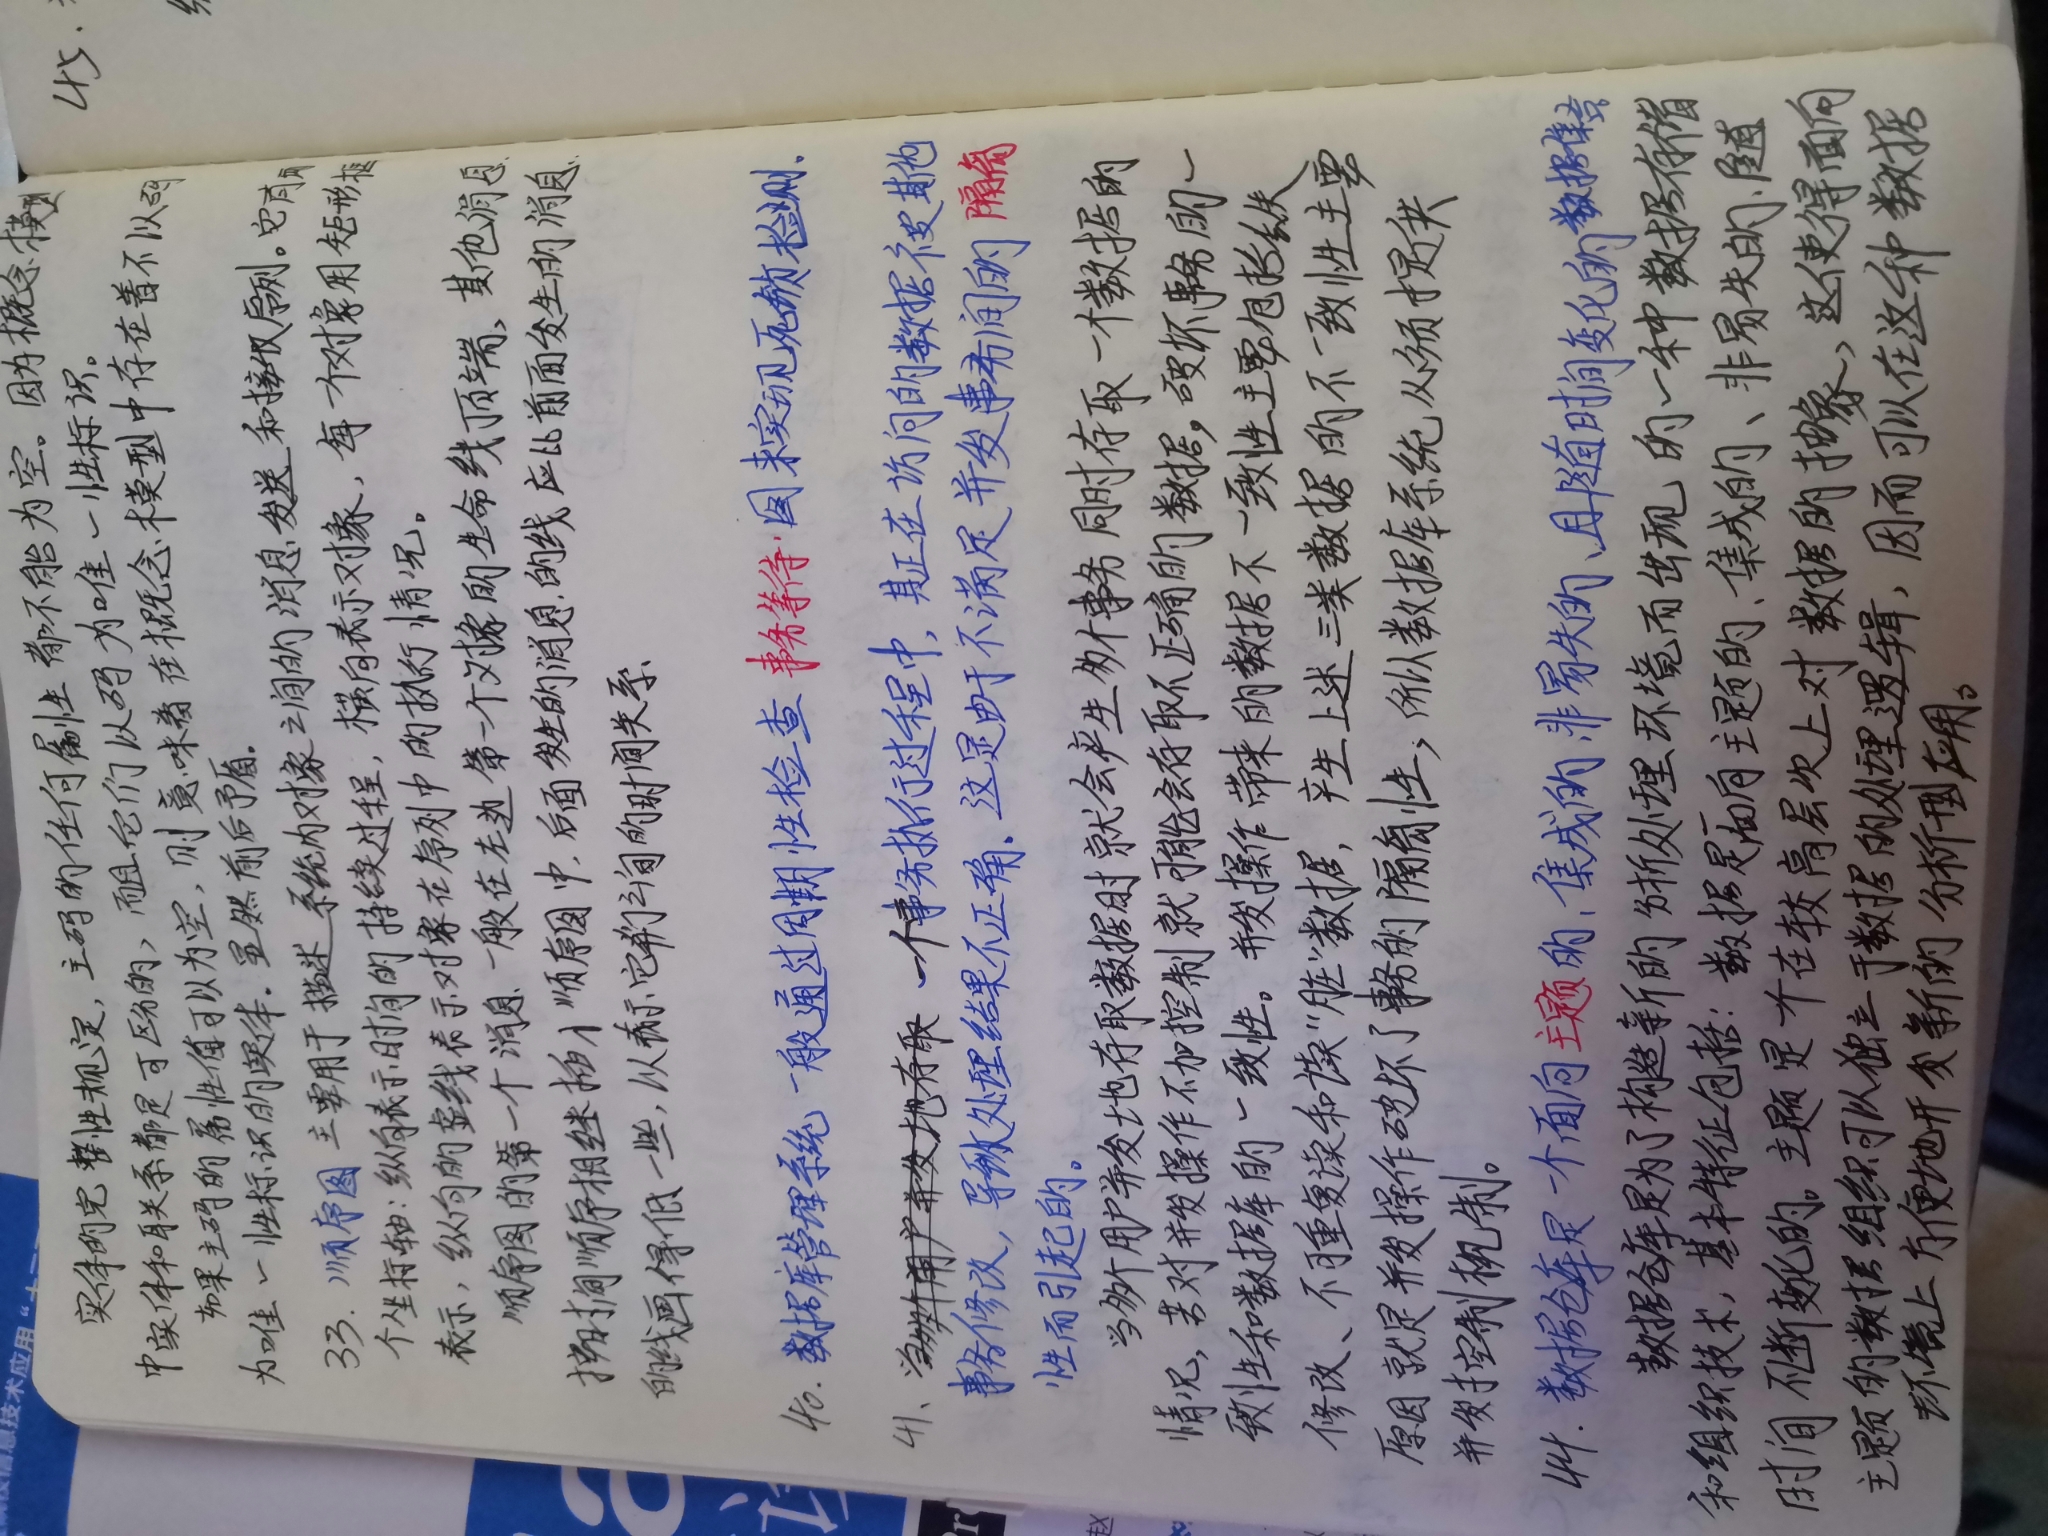 实体的完整性规定，主码的任何属性都不能为空。因为概念模型
中实体和联系都是可区分的，而且它们以码为唯一性标识。
如果主码的属性值可以为空，则意味着在概念模型中存在着不以码
为唯一性标识的实体。显然前后矛盾。
33. 顺序图 主要用于描述系统内对象之间的消息发送和接收序列。它有两
个坐标轴：纵向表示时间的持续过程，横向表示对象，每一个对象用矩形框
表示，纵向的虚线表示对象在序列中的执行情况。
顺序图的第一个消息一般在左边第一个对象的生命线顶端、其他消息
按时间顺序相继插入顺序图中，后面发生的消息的线应比前面发生的消息
的线画得低一些，以表示它们之间的时间关系
40. 数据库管理系统一般通过周期性检查 事务等待 图来实现死锁检测。
41、 一个事务执行过程中，其正在访问的数据被其他
事务修改，导致处理结果不正确、这是由于不满足并发事务间的 隔离
性而引起的。
当多个用户并发地存取数据时就会产生多个事务同时存取一个数据的
情况，若对并发操作不加控制就可能会存取不正确的数据，破坏事务的一
致性和数据库的一致性。并发操作带来的数据不一致性主要包括丢失
修改、不可重复读和读“脏”数据，产生上述三类数据的不一致性主要
原因就是并发操作破坏了事务的隔离性，所以数据库系统必须提供
并发控制机制。
44. 数据仓库是一个面向主题的、集成的、非易失的、且随时间变化的数据集合
数据仓库是为了构造新的分析处理环境而出现的一种数据存储
和组织技术，基本特征包括：数据是面向主题的、集成的、非易失的、随
时间不断变化的。主题是一个在较高层次上对数据的抽象，这使得面向
主题的数据组织可以独立于数据的处理逻辑，因而可以在这种数据
环境上方便地开发新的分析型应用。
45.